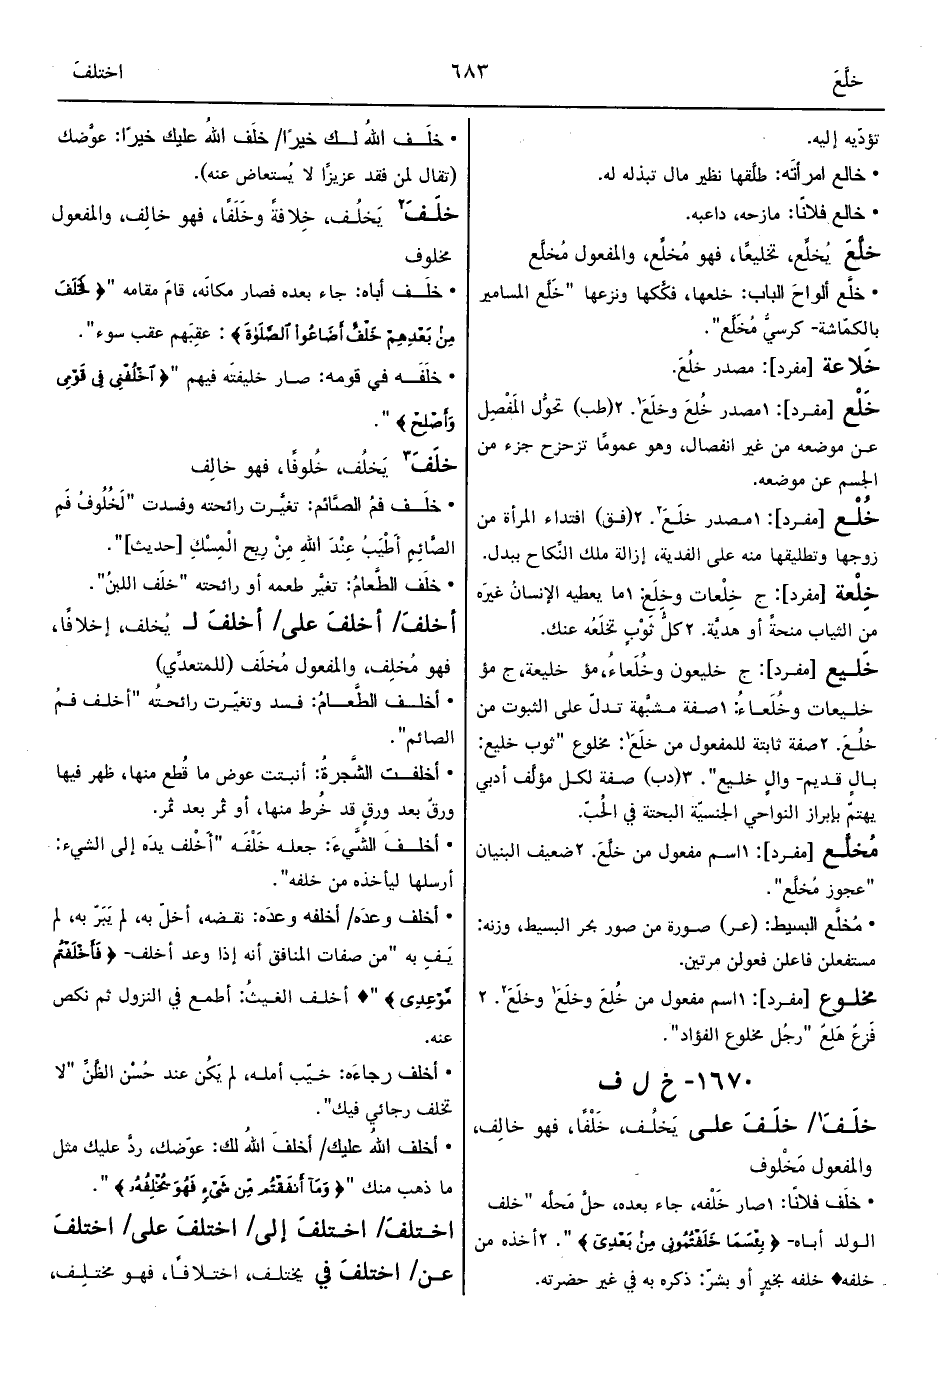 خلَّعَ
٦٨٣
اختلفَ
تؤدّيه إليه.
• خالع امرأتَه: طلّقها نظير مال تبذله له.
• خالع فلانًا: مازحه، داعبه.
خلَّعَ يُخلِّع، تخليعًا، فهو مُخلِّع، والمفعول مُخلَّع
• خلَّع ألواحَ الباب: خلعها، فكّكها ونزعها "خلَّع المسامير
بالكمّاشة- كرسيٌّ مُخَلَّع".
خَلاعة [مفرد]: مصدر خلُعَ.
خَلْع [مفرد]: ١مصدر خلُعَ وخلَعَ١. ٢(طب) تحوُّل المَفْصِل
عـن موضعه من غير انفصال، وهو عمومًا تزحزح جزء من
الجسم عن موضعه.
خُلْـع [مفرد]: ١مصدر خلَعَ٢. ٢(فـق) افتداء المرأة من
زوجها وتطليقها منه على الفدية، إزالة ملك النِّكاح ببدل.
خِلْعة [مفرد]: ج خِلْعات وخِلَع: ١ما يعطيه الإنسانُ غيرَه
من الثياب منحةً أو هديَّة. ٢كلُّ ثَوْبٍ تخلَعُه عنك.
خَليع [مفرد]: ج خليعون وخُلَعاءُ،مؤ خليعة،ج مؤ
خليعات وخُلَعـاءُ: ١صفة مشبَّهة تدلّ على الثبوت من
خلُعَ. ٢صفة ثابتة للمفعول من خلَعَ١: مخلوع "ثوب خليع:
بـالٍ قديم- والٍ خليع". ٣(دب) صفة لكـل مؤلَّف أدبي
يهتمّ بإبراز النواحي الجنسيّة البحتة في الحُبّ.
مُخلَّـع [مفرد]: ١اسم مفعول من خلَّعَ. ٢ضعيف البنيان
"عجوز مُخلَّع".
• مُخلَّع البسيط: (عـر) صـورة من صور بحر البسيط، وزنه:
مستفعلن فاعلن فعولن مرتين.
مخلـوع [مفرد]: ١اسم مفعول من خلُعَ وخلَعَ١ وخلَعَ٢. ٢
فَزِعٌ هَلِعٌ "رجُل مخلوع الفؤاد".
١٦٧٠- خ ل ف
خلَفَ١/ خلَفَ على يَخلُـف، خَلْفًا، فهو خالِف،
والمفعول مَخْلوف
• خلَف فلانًا: ١صار خَلْفَه، جاء بعده، حلَّ مَحلَّه "خلف
الولد أباه- ﴿ بِئْسَمَا خَلَفْتُمُونِي مِنْ بَعْدِي ﴾". ٢أخذه من
خلفه♦ خلفه بخيرٍ أو بشرّ: ذكره به في غير حضرته.
• خلَـف اللهُ لـك خيرًا/ خلَف اللهُ عليك خيرًا: عوَّضك
(تقال لمن فقد عزيزًا لا يُستعاض عنه).
خلَفَ٢ يَخلُـف، خِلافةً وخَلَفًا، فهو خالِف، والمفعول
مخلوف
• خلَـف أباه: جاء بعده فصار مكانَه، قامَ مقامه "﴿ فَخَلَفَ
مِنْ بَعْدِهِمْ خَلْفٌ أَضَاعُوا الصَّلَوٰةَ ﴾: عقِبَهم عقب سوء".
• خلَفَـه في قومه: صـار خليفتَه فيهم "﴿ اخْلُفْنِي فِي قَوْمِي
وَأَصْلِحْ ﴾".
خلَفَ٣ يَخلُف، خُلوفًا، فهو خالِف
• خلَـف فمُ الصَّائم: تغيَّرت رائحته وفسدت "لَخُلُوفُ فَمِ
الصَّائِمِ أَطْيَبُ عِنْدَ اللهِ مِنْ رِيحِ الْمِسْكِ [حديث]".
• خلَف الطَّعامُ: تغيَّر طعمه أو رائحته "خلَف اللبنُ".
أخلفَ/ أخلفَ على/ أخلفَ لـ يُخلف، إخلافًا،
فهو مُخلِف، والمفعول مُخلَف (للمتعدِّي)
• أخلـف الطَّعـامُ: فسد وتغيّرت رائحتُه "أخلـف فـمُ
الصائم".
• أخلفـت الشَّجرةُ: أنبتت عوض ما قُطع منها، ظهر فيها
ورقٌ بعد ورقٍ قد خُرط منها، أو ثمر بعد ثمر.
• أخلـفَ الشَّيءَ: جعلـه خَلْفَـه "أخْلف يدَه إلى الشيء:
أرسلها ليأخذه من خلفه".
• أخلف وعدَه/ أخلفه وعدَه: نقـضه، أخلّ به، لم يَبَرّ به، لم
يَـفِ به "من صفات المنافق أنه إذا وعد أخلف- ﴿ فَأَخْلَفْتُمْ
مَوْعِدِي ﴾"♦ أخلـف الغيـثُ: أطمع في النزول ثم نكص
عنه.
• أخلف رجاءَه: خيّب أمله، لم يَكُن عند حُسْن الظّنِّ "لا
تخلف رجائي فيك".
• أخلف اللهُ عليك/ أخلفَ اللهُ لك: عوّضك، ردَّ عليك مثل
ما ذهب منك "﴿ وَمَا أَنفَقْتُم مِّن شَيْءٍ فَهُوَ يُخْلِفُهُ ﴾".
اختلفَ/ اختلفَ إلى/ اختلفَ على/ اختلفَ
عـن/ اختلفَ في يختلف، اختـلافًـا، فهـو مختلِف،